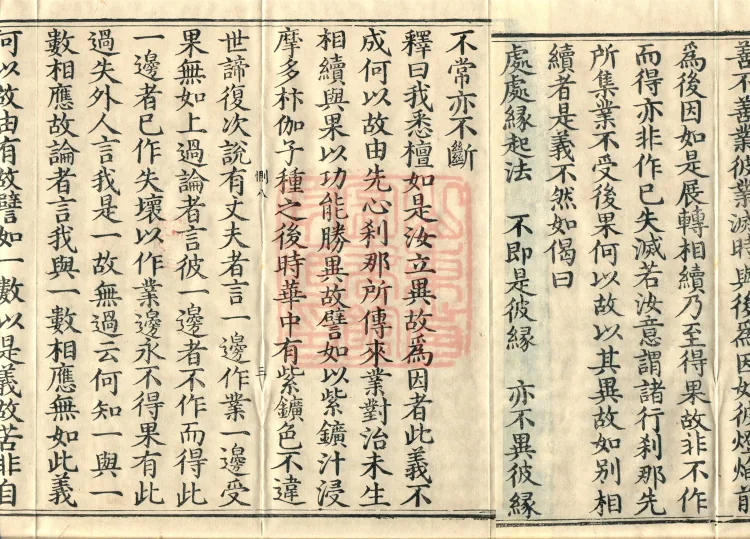 善不善業彼業滅時與後為因如彼燈焰前
為後因如是展轉相續乃至得果故非不作
而得亦非作已失滅若汝意謂諸行刹那先
所集業不受後果何以故以其異故如別相
續者是義不然如偈曰
處處緣起法 不即是彼緣 亦不異彼緣
不常亦不斷
釋曰我悉檀如是汝立異故為因者此義不
成何以故由先心刹那所傳來業對治未生
相續與果以功能勝異故譬如以紫鑛汁浸
摩多栟伽子種之後時華中有紫鑛色不違
惻八
三
世諦復次說有丈夫者言一邊作業一邊受
果無如上過論者言彼一邊者不作而得此
一邊者已作失壞以作業邊永不得果有此
過失外人言我是一故無過云何知一與一
數相應故論者言我與一數相應無如此義
何以故由有故譬如一數以是義故苦非自